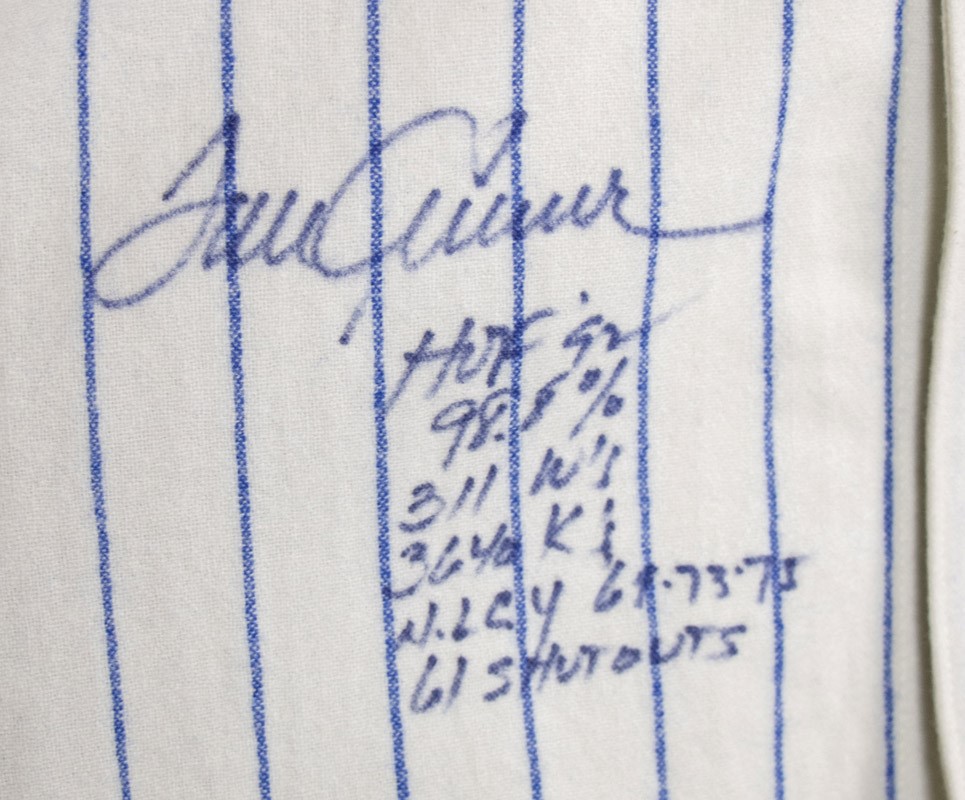 Tom Seaver
HOF '92
98.8%
311 W's
3640 K's
N.L CY 69·73·75
61 SHUTOUTS